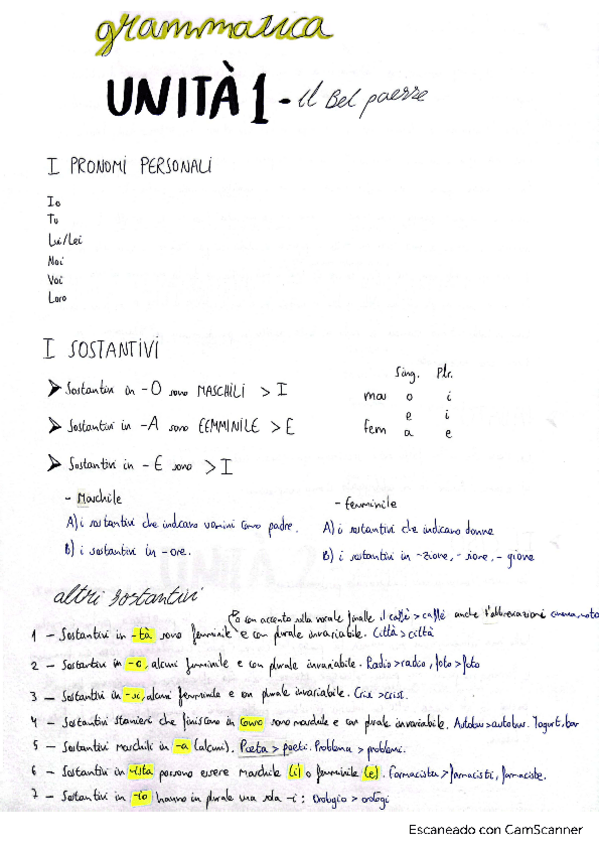 grammatica
UNITÀ 1 - il Bel paese
I PRONOMI PERSONALI
Io
Tu
Lui/Lei
Noi
Voi
Loro
I SOSTANTIVI
Sing. Plr.
➤ Sostantivi in -O sono MASCHILI > I
mas o i
e i
➤ Sostantivi in -A sono FEMMINILE > E
fem a e
➤ Sostantivi in -E sono > I
- Maschile
A) i sostantivi che indicano uomini como padre.
B) i sostantivi in -ore.
- femminile
A) i sostantivi che indicano donne
B) i sostantivi in -zione, -sione, -gione
altri sostantivi
o con accento sulla vocale finalle il caffè > caffè anche l'abbreviazioni cinema, moto
1 - Sostantivi in -tà sono femminile e con plurale invariabile. Città > città
2 - Sostantivi in -o, alcuni femminile e con plurale invariabile. Radio > radio, foto > foto
3 - Sostantivi in -si, alcuni femminile e con plurale invariabile. Crisi > crisi.
4 - Sostantivi stranieri che finiscono in cons sono maschile e con plurale invariabile. Autobus > autobus. Yogurt, bar
5 - Sostantivi maschili in -a (alcuni). Poeta > poeti. Problema > problemi.
6 - Sostantivi in -ista possono essere maschile (i) o femminile (e). Farmacista > farmacisti, farmaciste.
7 - Sostantivi in -io hanno in plurale una sola -i: Orologio > orologi
Escaneado con CamScanner